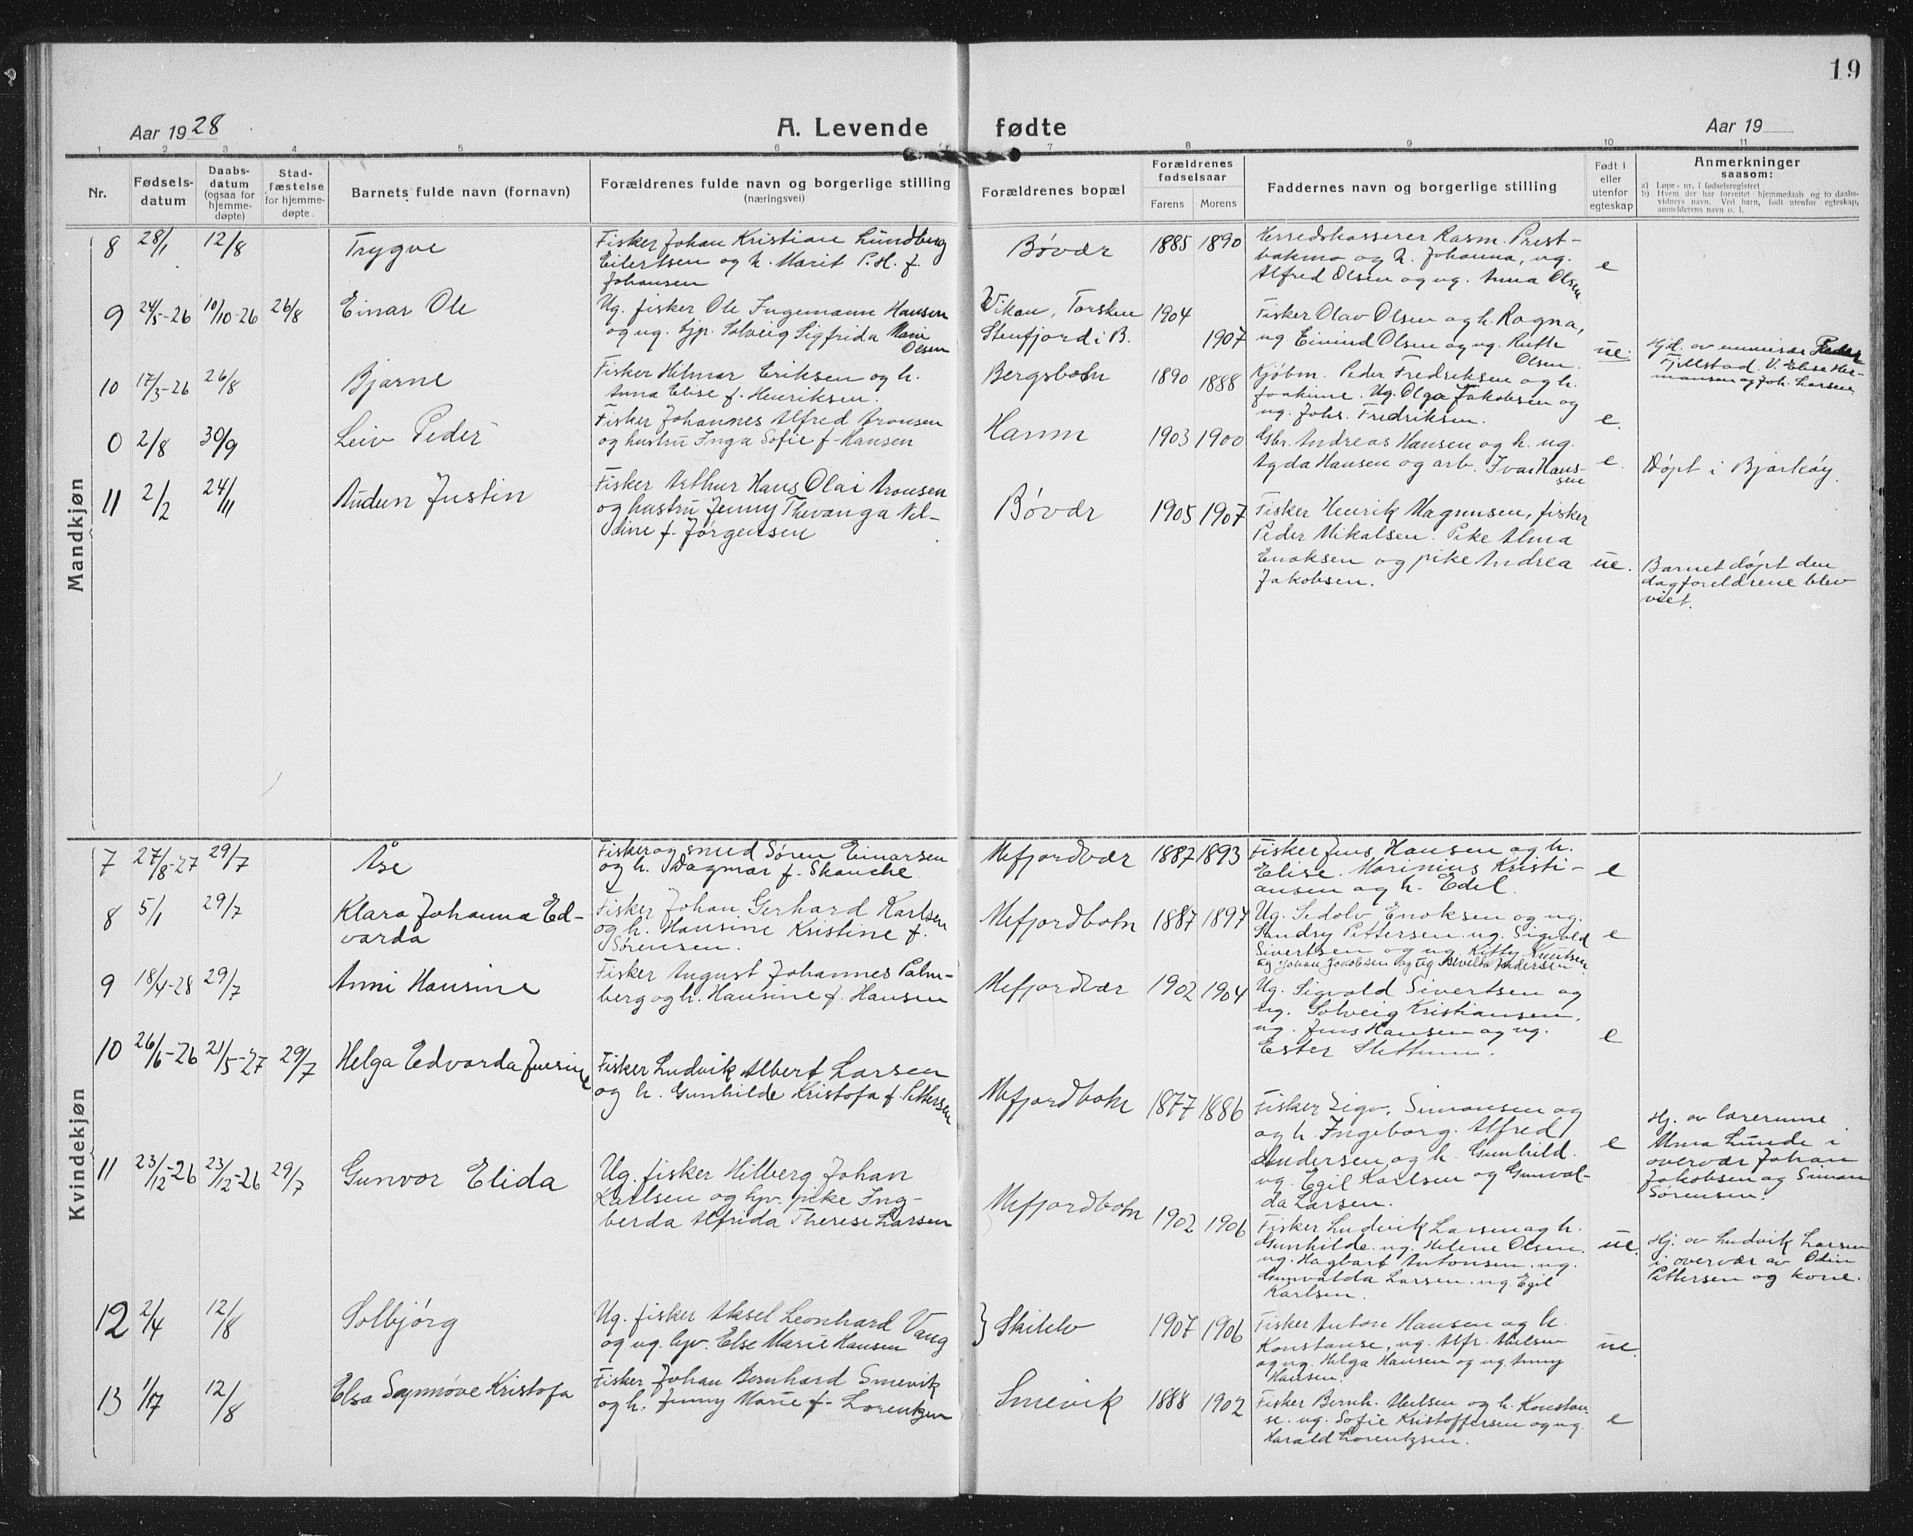 19
Aar 1928
A. Levende fødte
Aar 19
1 2 3 4 5 6 7 8 9 10 11
Nr.
Fødsels-
datum
Daabs-
datum
(ogsaa for
hjemme-
døpte)
Stad-
fæstelse
for hjemme-
døpte.
Barnets fulde navn (fornavn)
Forældrenes fulde navn og borgerlige stilling
(næringsvei)
Forældrenes bopæl
Forældrenes
fødselsaar
Farens Morens
Faddernes navn og borgerlige stilling
Født i
eller
utenfor
egteskap
Anmerkninger
saasom:
a) Løpe-nr. i fødselsregistret
b) Hvem der har forrettet hjemmedaab og to daabs-
vidners navn. Ved barn, født utenfor egteskap,
anmelderens navn o. l.
Mandkjøn
8 28/1 12/8 Trygve
Fisker Johan Kristian Lundberg
Eilertsen og h. Marit P. H. f.
Johansen
Bøvær 1885 1890
Herredskasserer Rasm. Prest-
bakmo og h. Johanna, ug.
Alfred Olsen og ug. Anna Olsen
e
9 24/5-26 10/10-26 26/8 Einar Ole
Ug. fisker Ole Ingemann Hansen
og ug. hjp. Solveig Sigfrida Marie
Olsen
Vikan, Torsken 1904
Stenfjord i B. 1907
Fisker Olav Olsen og h. Ragna,
ug Eivind Olsen og ug. Ruth
Olsen.
ue.
Hjd. av Peder
Tjellstad. V. Elise Her-
mansen og Joh. Larsen
10 17/3-26 26/8 Bjarne
Fisker Hilmar Eriksen og h.
Anna Elise f. Henriksen.
Bergsbotn 1890 1888
Kjøbm. Peder Fredriksen og h.
Joakime. Ug. Olga Jakobsen og
ug. Johs. Fredriksen.
e.
0 2/8 30/9 Leiv Peder
Fisker Johannes Alfred Aronsen
og hustru Inga Sofie f. Hansen
Hamn 1903 1900
Gbr. Andreas Hansen og h. ug.
Agda Hansen og arb. Ivar Hans-
sen
e.
Døpt i Bjarkøy.
11 2/2 24/11 Audun Justin
Fisker Arthur Hans Olai Aronsen
og hustru Jenny Thevanga Vil-
dine f. Jørgensen
Bøvær 1905 1907
Fisker Henrik Magnusen, fisker
Peder Mikalsen. Pike Alma
Enoksen og pike Andrea
Jakobsen.
ue.
Barnet døpt den
dag foreldrene blev
viet.
Kvindekjøn
7 27/8-27 29/7 Åse
Fisker og smed Søren Einarsen
og h. Dagmar f. Skanche.
Mefjordvær 1887 1893
Fisker Jens Hansen og h.
Elise. Marinius Kristi-
ansen og h. Edel.
e
8 5/1 29/7 Klara Johanna Ed-
varda
Fisker Johan Gerhard Karlsen
og h. Hansine Kristine f.
Sørensen.
Mefjordbotn 1887 1897
Ug. Sedolv Enoksen og ug.
Sandry Pettersen. ug. Sigvald
Sivertsen og ug. Kitty Knutsen
ug Johan Jakobsen og ug Andersen
e
9 18/4-28 29/7 Anni Hansine
Fisker August Johannes Palm-
berg og h. Hansine f. Hansen
Mefjordvær 1902 1904
Ug. Sigvald Sivertsen og
ug. Solveig Kristiansen.
ug. Jens Hansen og ug.
Ester
e
10 26/6-26 21/5-27 29/7 Helga Edvarda Jensine
Fisker Ludvik Albert Larsen
og h. Gunhilde Kristofa f. Pettersen
Mefjordbotn 1877 1886
Fisker Sigv. Simonsen og
og h. Ingeborg. Alfred
Andersen og h. Gunhild.
ug. Egil Karlsen og Gunval-
da Larsen.
e
Hj. av lærerinne
Alma Lunde i
overvær Johan
Jakobsen og Simon
Sørensen.
11 23/12-26 23/12-26 29/7 Gunvor Elida
Ug. fisker Hilberg Johan
Karlsen og hjv. pike Ing-
berda Alfrida Therese Larsen
Mefjordbotn 1902 1906
Fisker Ludvik Larsen og h.
Gunhilde. ug. Helene Olsen.
ug. Hagbart Antonsen. ug.
Gunvalda Larsen. ug Egil
Karlsen.
ue.
Hj. av Ludvik Larsen
i overvær av Odin
Pettersen og kone.
12 2/4 12/8 Solbjørg
Ug. fisker Aksel Leonhard Vang
og ug. hjv. Else Marie Hansen
} Skitelv 1907 1906
Fisker Anton Hansen og h.
Konstanse, ug. Alfr. Nielsen
og ug. Helga Hansen og ug. Anny
Hansen.
ue.
13 1/7 12/8 Elsa Synnøve Kristofa
Fisker Johan Bernhard Smevik
og h. Jenny Marie f. Lorentzen
Smevik 1888 1902
Fisker Bernh. Nielsen og h. Konstan-
se. ug. Sofie Kristoffersen og ug.
Harald Lorentzsen.
e